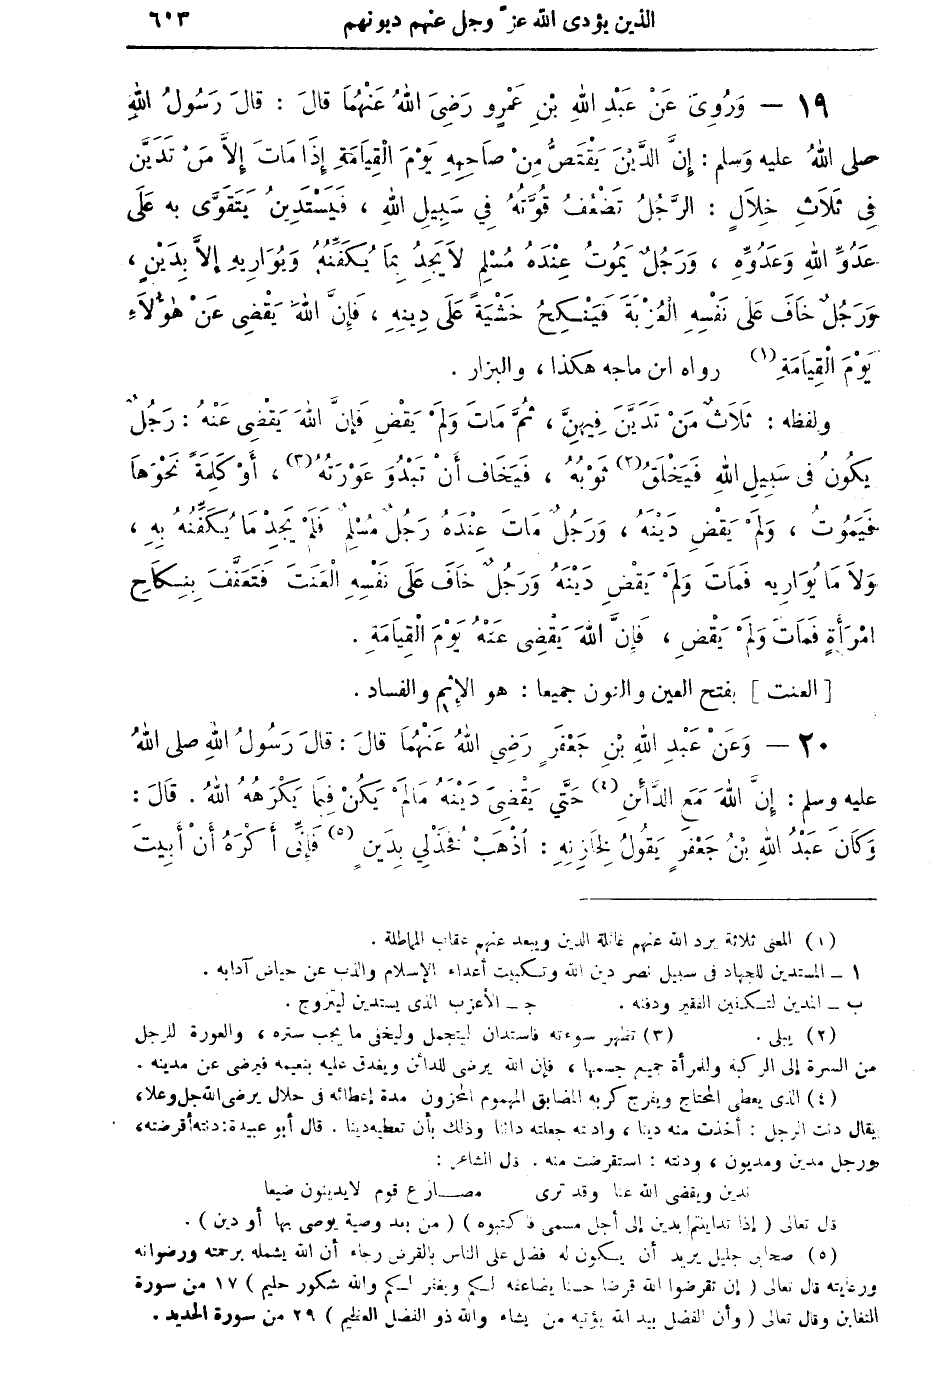 الذين يؤدى الله عزّ وجل عنهم ديونهم ٦٠٣
١٩ — وَرُوِىَ عَنْ عَبْدِ اللهِ بْنِ عَمْرٍو رَضِىَ اللهُ عَنْهُمَا قَالَ : قَالَ رَسُولُ اللهِ
صلى اللهُ عليه وَسلم : إِنَّ الدَّيْنَ يَقْتَصُّ مِنْ صَاحِبِهِ يَوْمَ الْقِيَامَةِ إِذَا مَاتَ إِلاَّ مَنْ تَدَيَّنَ
فِى ثَلَاثِ خِلَالٍ : الرَّجُلُ تَضْعُفُ قُوَّتُهُ فِي سَبِيلِ اللهِ ، فَيَسْتَدِينُ يَتَقَوَّى بِه عَلَى
عَدُوِّ اللهِ وَعَدُوِّهِ ، وَرَجُلٌ يَمُوتُ عِنْدَهُ مُسْلِم لاَ يَجِدُ بِمَا يُكَفِّنُهُ وَيُوَارِيهِ إِلاَّ بِدَيْنٍ ،
وَرَجُلٌ خَافَ عَلَى نَفْسِهِ الْعُزْبَةَ فَيَنْكِحُ خَشْيَةً عَلَى دِينِهِ ، فَإِنَّ اللهَ يَقْضِى عَنْ هٰؤُلَاءِ
يَوْمَ الْقِيَامَةِ (١) رواه ابن ماجه هكذا ، والبزار .
ولفظه : ثَلَاثٌ مَنْ تَدَيَّنَ فِيهِنَّ ، ثُمَّ مَاتَ وَلَمْ يَقْضِ فَإِنَّ اللهَ يَقْضِى عَنْهُ : رَجُلٌ
يَكُونُ فى سَبِيلِ اللهِ فَيَخْلَقُ (٢) ثَوْبُهُ ، فَيَخَاف أَنْ تَبْدُوَ عَوْرَتُهُ (٣) ، أَوْ كَلِمَةً نَحْوَهَا
فَيَمُوتُ ، وَلَمْ يَقْضِ دَيْنَهُ ، وَرَجُلٌ مَاتَ عِنْدَهُ رَجُلٌ مُسْلِمٌ فَلَمْ يَجِدْ مَا يُكَفِّنُهُ بِهِ ،
وَلاَ مَا يُوَارِيهِ فَمَاتَ وَلَمْ يَقْضِ دَيْنَهُ وَرَجُلٌ خَافَ عَلَى نَفْسِهِ الْعَنَتَ فَتَعَفَّفَ بِنِكَاحِ
امْرَأَةٍ فَمَاتَ وَلَمْ يَقْضِ ، فَإِنَّ اللهَ يَقْضِى عَنْهُ يَوْمَ الْقِيَامَةِ .
[ العنت ] بفتح العين والنون جميعا : هو الإثم والفساد .
٢٠ — وَعَنْ عَبْدِ اللهِ بْنِ جَعْفَرٍ رَضِيَ اللهُ عَنْهُمَا قَالَ : قَالَ رَسُولُ اللهِ صلى اللهُ
عليه وسلم : إِنَّ اللهَ مَعَ الدَّائِنِ (٤) حَتَّي يَقْضِىَ دَيْنَهُ مَالَمْ يَكُنْ فِيمَا يَكْرَهُهُ اللهُ . قَالَ :
وَكَانَ عَبْدُ اللهِ بْنُ جَعْفَرٍ يَقُولُ لِخَازِنِهِ : اَذْهَبْ فَخُذْلِي بِدَيْنٍ (٥) فَإِنِّى أَكْرَهُ أَنْ أَبِيتَ
(١) المعنى ثلاثة يرد الله عنهم غائلة الدين ويبعد عنهم عقاب المماطلة .
١ ـ المستدين للجهاد فى سبيل نصر دين الله وتكبيت أعداء الإسلام والذب عن حياض آدابه .
ب ـ المدين لتكفين الفقير ودفنه . جـ ـ الأعزب الذى يستدين ليتزوج .
(٢) يبلى . (٣) تظهر سوءته فاستدان ليتجمل وليخفى ما يجب ستره ، والعورة للرجل
من السرة إلى الركبة وللمرأة جميع جسمها ، فإن الله يرضى للدائن ويغدق عليه بنعيمه فيرضى عن مدينه .
(٤) الذى يعطى المحتاج ويفرج كربه المضايق المهموم المحزون مدة إعطائه فى حلال يرضى الله جل وعلا ،
يقال دنت الرجل : أخذت منه دينا ، وادنته جعلته دائنا وذلك بأن تعطيه دينا . قال أبو عبيدة : دنته أقرضته ،
ورجل مدين ومديون ، ودنته : استقرضت منه . قال الشاعر :
ندين ويقضى الله عنا وقد ترى مصارع قوم لايدينون ضيعا
قال تعالى ( إذا تداينتم بدين إلى أجل مسمى فاكتبوه ) ( من بعد وصية يوصى بها أو دين ) .
(٥) صحابى جليل يريد أن يكون له فضل على الناس بالقرض رجاء أن الله يشمله برحمته ورضوانه
ورعايته قال تعالى ( إن تقرضوا الله قرضا حسنا يضاعفه لكم ويغفر لكم والله شكور حليم ) ١٧ من سورة
التغابن وقال تعالى ( وأن الفضل بيد الله يؤتيه من يشاء والله ذو الفضل العظيم ) ٢٩ من سورة الحديد .